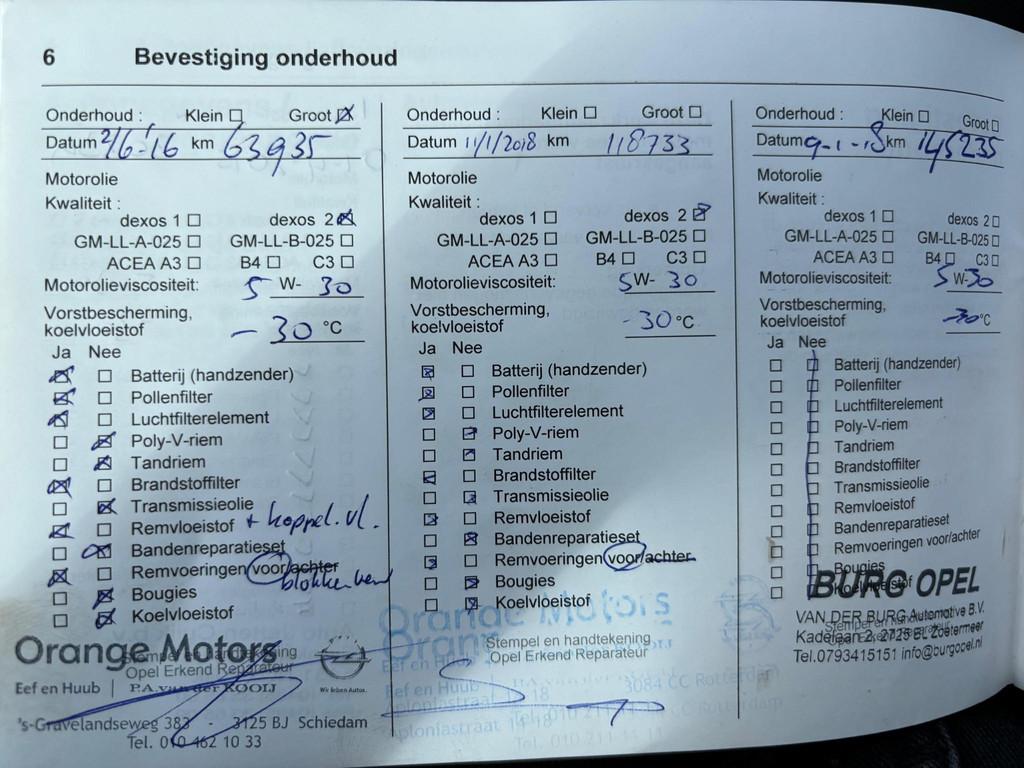 6 Bevestiging onderhoud
Onderhoud : Klein ☐ Groot ☒
Datum 2/6-'16 km 63935
Motorolie
Kwaliteit :
dexos 1 ☐ dexos 2 ☒
GM-LL-A-025 ☐ GM-LL-B-025 ☐
ACEA A3 ☐ B4 ☐ C3 ☐
Motorolieviscositeit: 5 W- 30
Vorstbescherming,
koelvloeistof -30 °C
Ja Nee
☒ ☐ Batterij (handzender)
☒ ☐ Pollenfilter
☒ ☐ Luchtfilterelement
☐ ☒ Poly-V-riem
☐ ☒ Tandriem
☒ ☐ Brandstoffilter
☐ ☒ Transmissieolie
☒ ☐ Remvloeistof + koppel.vl.
☐ ☒ Bandenreparatieset
☒ ☐ Remvoeringen voor/achter
☐ ☒ Bougies
☐ ☒ Koelvloeistof
Orange Motors
Stempel en handtekening
Opel Erkend Reparateur
Eef en Huub | P.A. van der KOOIJ
Wir leben Autos.
's-Gravelandseweg 383 3125 BJ Schiedam
Tel. 010 462 10 33
Onderhoud : Klein ☐ Groot ☐
Datum 11/1/2018 km 118733
Motorolie
Kwaliteit :
dexos 1 ☐ dexos 2 ☒
GM-LL-A-025 ☐ GM-LL-B-025 ☐
ACEA A3 ☐ B4 ☐ C3 ☐
Motorolieviscositeit: 5 W- 30
Vorstbescherming,
koelvloeistof -30 °C
Ja Nee
☒ ☐ Batterij (handzender)
☒ ☐ Pollenfilter
☒ ☐ Luchtfilterelement
☐ ☒ Poly-V-riem
☐ ☒ Tandriem
☒ ☐ Brandstoffilter
☐ ☒ Transmissieolie
☒ ☐ Remvloeistof
☐ ☒ Bandenreparatieset
☒ ☐ Remvoeringen voor/achter
☐ ☒ Bougies
☐ ☒ Koelvloeistof
Orange Motors
Stempel en handtekening
Opel Erkend Reparateur
Eef en Huub
3084 CC Rotterdam
Onderhoud : Klein ☐ Groot ☐
Datum 9-1-18 km 145235
Motorolie
Kwaliteit :
dexos 1 ☐ dexos 2 ☐
GM-LL-A-025 ☐ GM-LL-B-025 ☐
ACEA A3 ☐ B4 ☐ C3 ☐
Motorolieviscositeit: 5 W-30
Vorstbescherming,
koelvloeistof -30 °C
Ja Nee
☐ ☐ Batterij (handzender)
☐ ☐ Pollenfilter
☐ ☐ Luchtfilterelement
☐ ☐ Poly-V-riem
☐ ☐ Tandriem
☐ ☐ Brandstoffilter
☐ ☐ Transmissieolie
☐ ☐ Remvloeistof
☐ ☐ Bandenreparatieset
☐ ☐ Remvoeringen voor/achter
☐ ☐ Bougies
☐ ☐ Koelvloeistof
BURG OPEL
VAN DER BURG Automotive B.V.
Kadelaan 2, 2725 BL Zoetermeer
Tel.0793415151 info@burgopel.nl